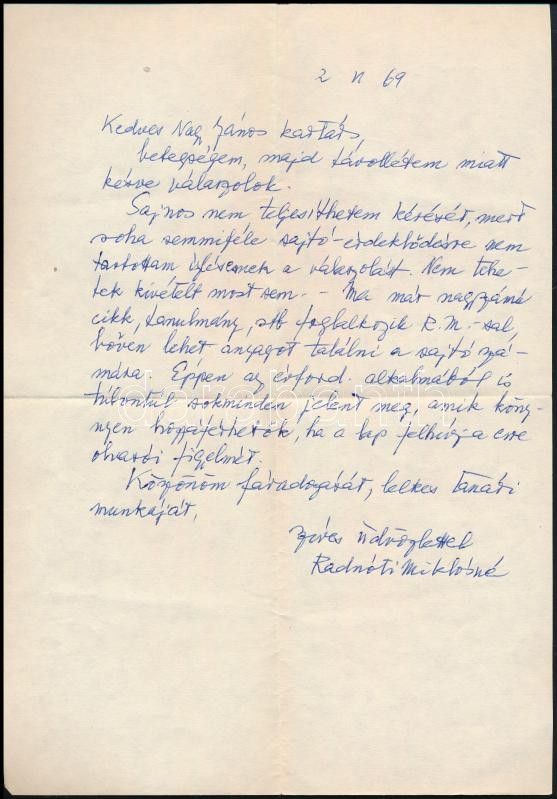 2 VI 69
Kedves Nagy János kartárs,
betegségem, majd távollétem miatt
késve válaszolok.
Sajnos nem teljesíthetem kérését, mert
soha semmiféle sajtó-érdeklődésre nem
tartottam ízlésemnek a válaszolást. Nem tehe-
tek kivételt most sem. – Ma már nagyszámú
cikk, tanulmány, stb foglalkozik R.M.-sal,
bőven lehet anyagot találni a sajtó szá-
mára. Éppen az évford. alkalmából is
túlontúl sokminden jelent meg, amik köny-
nyen hozzáférhetők, ha a lap felhívja erre
olvasói figyelmét.
Köszönöm fáradozását, lelkes tanári
munkáját,
szíves üdvözlettel
Radnóti Miklósné